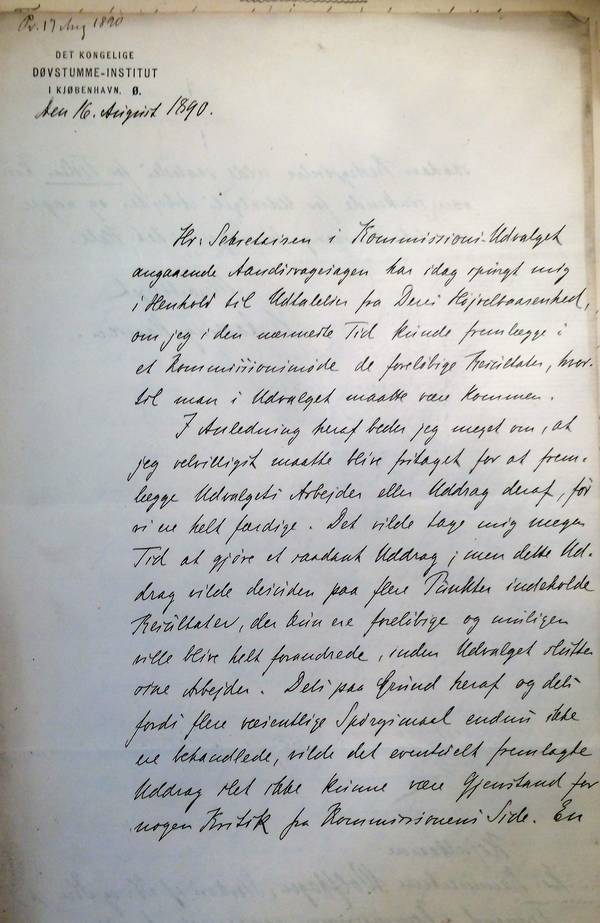 Pr. 17 Aug 1890
DET KONGELIGE
DØVSTUMME-INSTITUT
I KJØBENHAVN. Ø.
Den 16. August 1890.
Hr. Sekretairen i Kommissions-Udvalget
angaaende Aandssvagesagen har idag spurgt mig
i Henhold til Udtalelser fra Deres Højvelbaarenhed,
om jeg i den nærmeste Tid kunde fremlægge i
et Kommissionsmøde de foreløbige Resultater, hvor-
til man i Udvalget maatte være kommen.
I Anledning heraf beder jeg meget om, at
jeg velvilligst maatte blive fritaget for at frem-
lægge Udvalgets Arbejder eller Uddrag deraf, før
vi ere helt færdige. Det vilde tage mig megen
Tid at gjøre et saadant Uddrag; men dette Ud-
drag vilde desuden paa flere Punkter indeholde
Resultater, der kun ere foreløbige og muligen
ville blive helt forandrede, inden Udvalget slutter
sine Arbejder. Dels paa Grund heraf og dels
fordi flere væsentlige Spørgsmaal endnu ikke
ere behandlede, vilde det eventuelt fremlagte
Uddrag slet ikke kunne være Gjenstand for
nogen Kritik fra Kommissionens Side. En